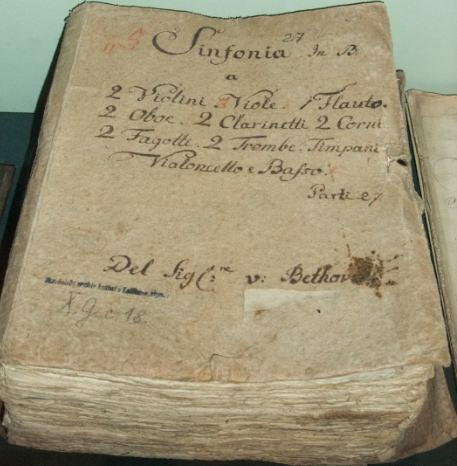 Sinfonia 27 In B.
a
2 Violini Viole. 1 Flauto.
2 Oboe. 2 Clarinetti 2 Corni
2 Fagotti. 2 Trombe. Timpani
Violoncello e Basso.
Parti 27
Del Sig v: Bethov
X. Gc 18